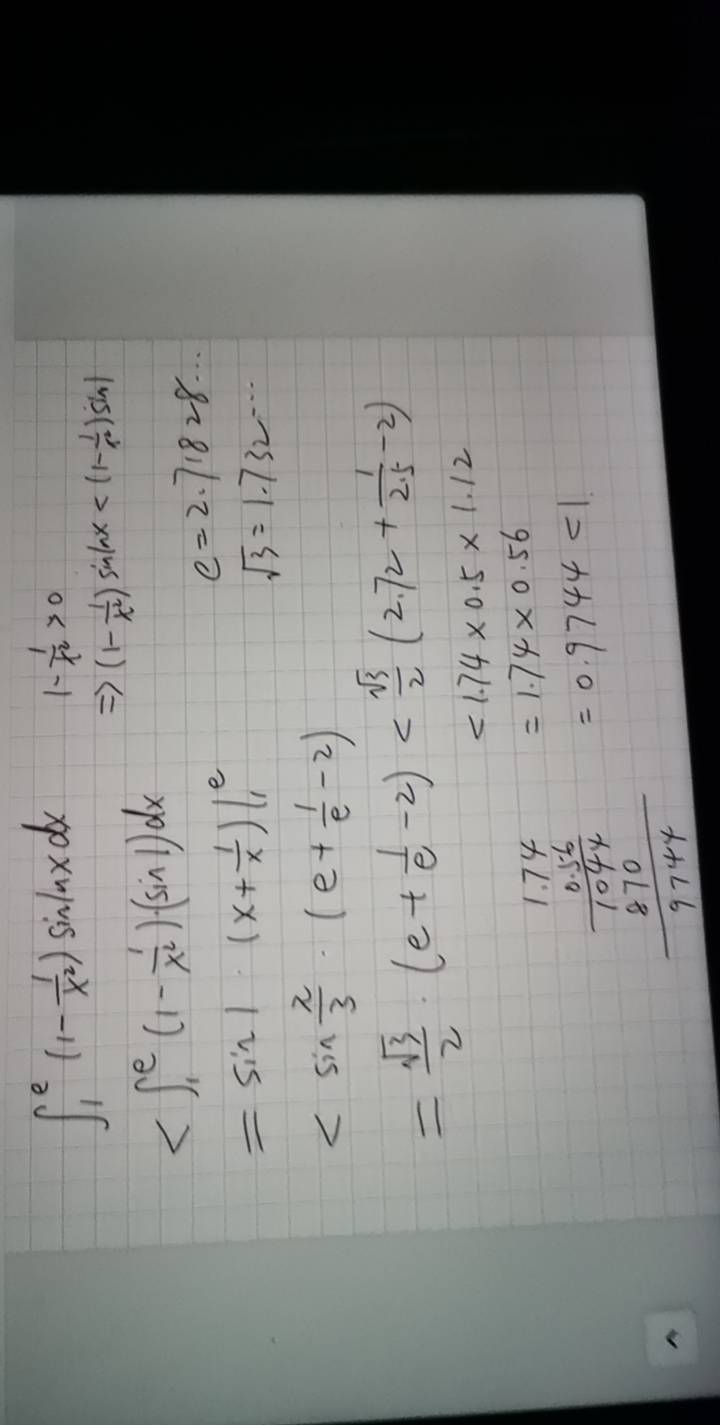 ∫₁ᵉ (1-1/x²) sinlnx dx
1-1/x²>0
=> (1-1/x²) sinlnx < (1-1/x²) sin1
< ∫₁ᵉ (1-1/x²)·(sin1)dx
= sin1·(x+1/x)|₁ᵉ
e=2.71828...
√3=1.732...
< sin π/3·(e+1/e-2)
= √3/2·(e+1/e-2) < √3/2 (2.72+1/2.5-2)
< 1.74×0.5×1.12
= 1.74×0.56
= 0.9744<1.
1.74
0.56
1044
870
9744